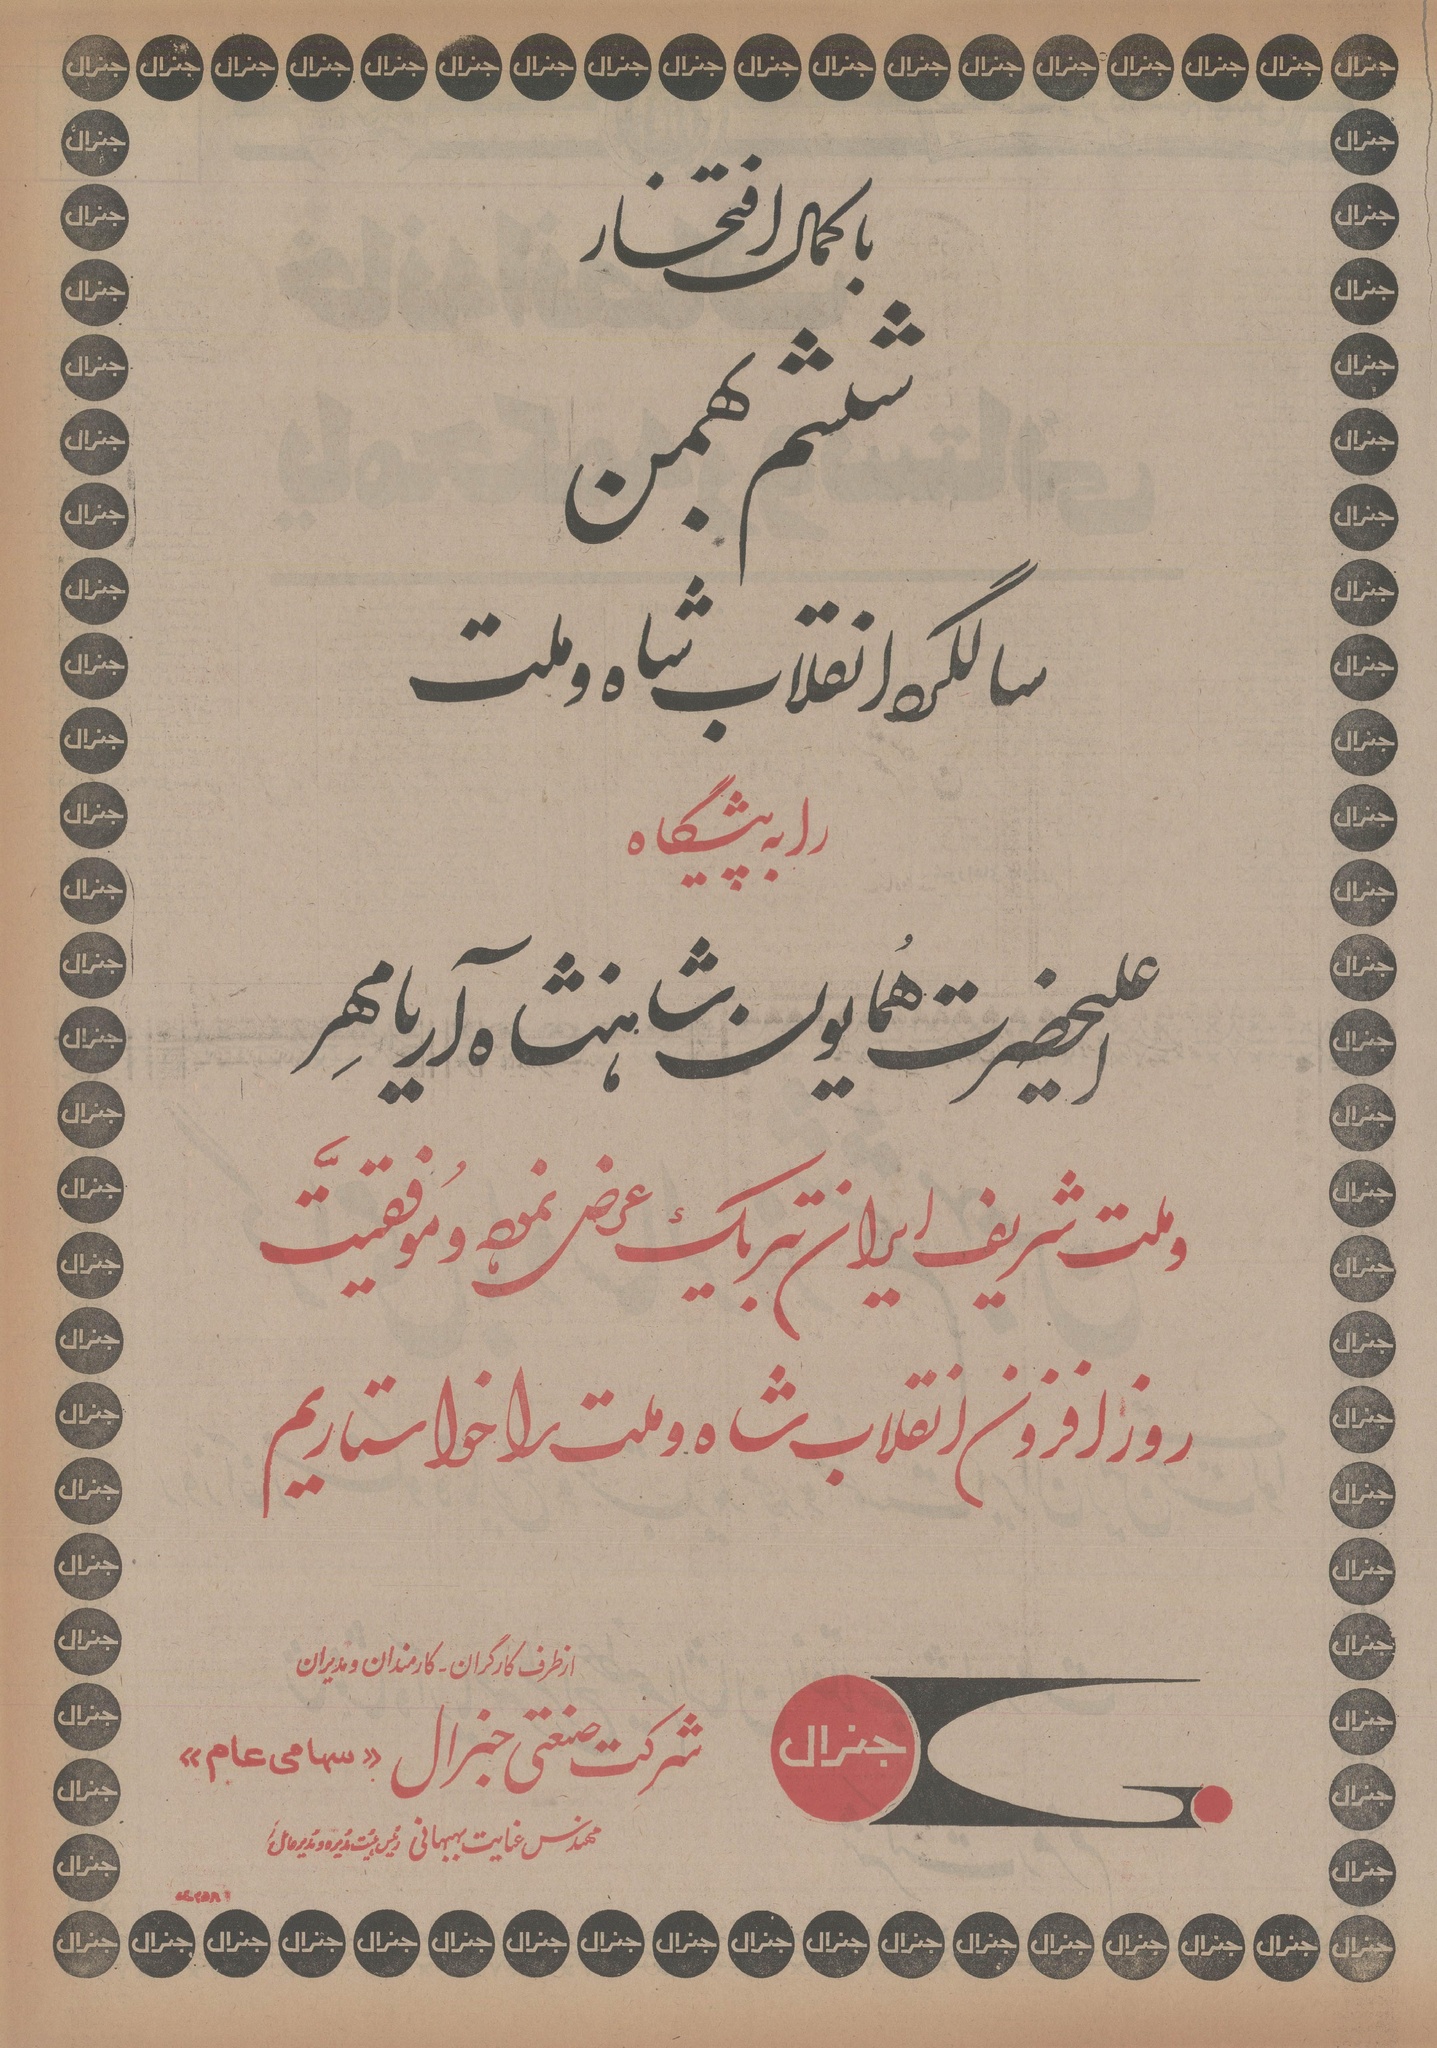 جنرال جنرال جنرال جنرال جنرال جنرال جنرال جنرال جنرال جنرال جنرال جنرال جنرال جنرال جنرال جنرال جنرال جنرال
با کمال افتخار
ششم بهمن
سالگرد انقلاب شاه و ملت
را به پیشگاه
اعلیحضرت همایون شاهنشاه آریامهر
و ملت شریف ایران تبریک عرض نموده و موفقیت
روز افزون انقلاب شاه و ملت را خواستاریم
از طرف کارگران - کارمندان و مدیران
شرکت صنعتی جنرال «سهامی عام»
جنرال
مهندس عنایت بهبهانی رئیس هیئت مدیره و مدیر عامل
جنرال جنرال جنرال جنرال جنرال جنرال جنرال جنرال جنرال جنرال جنرال جنرال جنرال جنرال جنرال جنرال جنرال جنرال